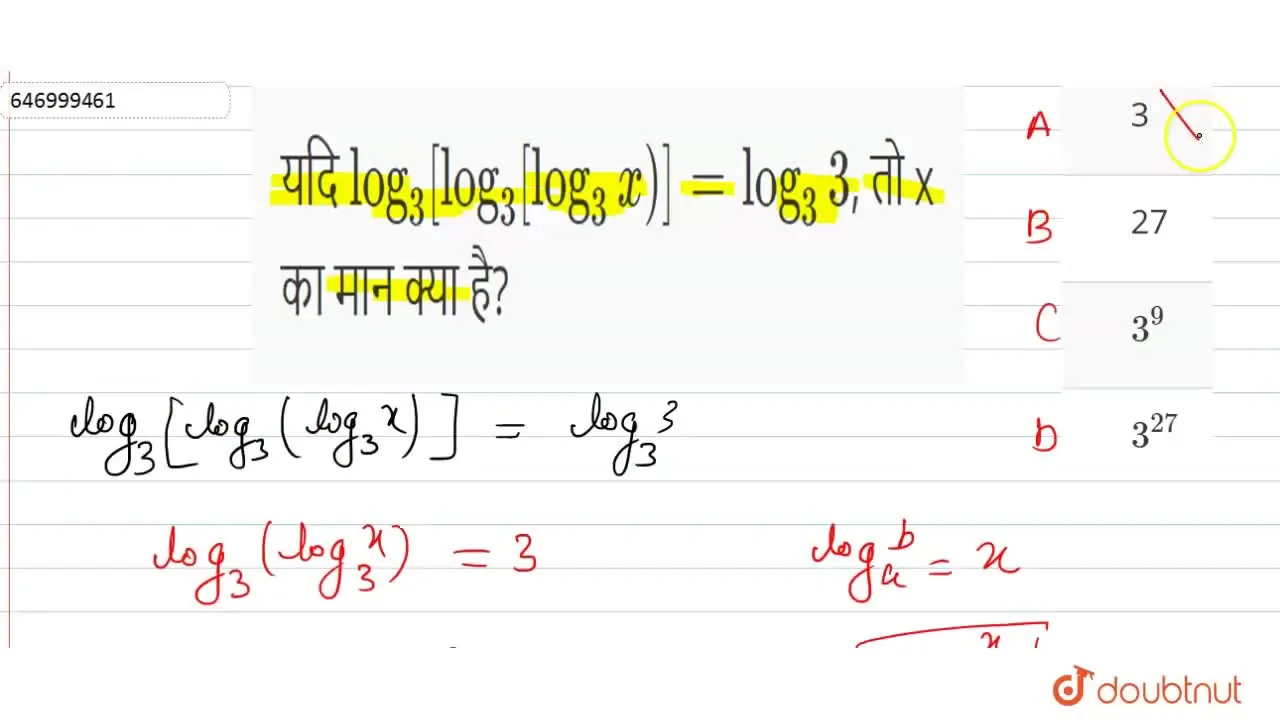 646999461
यदि log₃[log₃[log₃x)] = log₃3, तो x
का मान क्या है?
A 3
B 27
C 3⁹
D 3²⁷
log₃[log₃(log₃x)] = log₃3
log₃(log₃x) = 3
logₐb = x
x
doubtnut